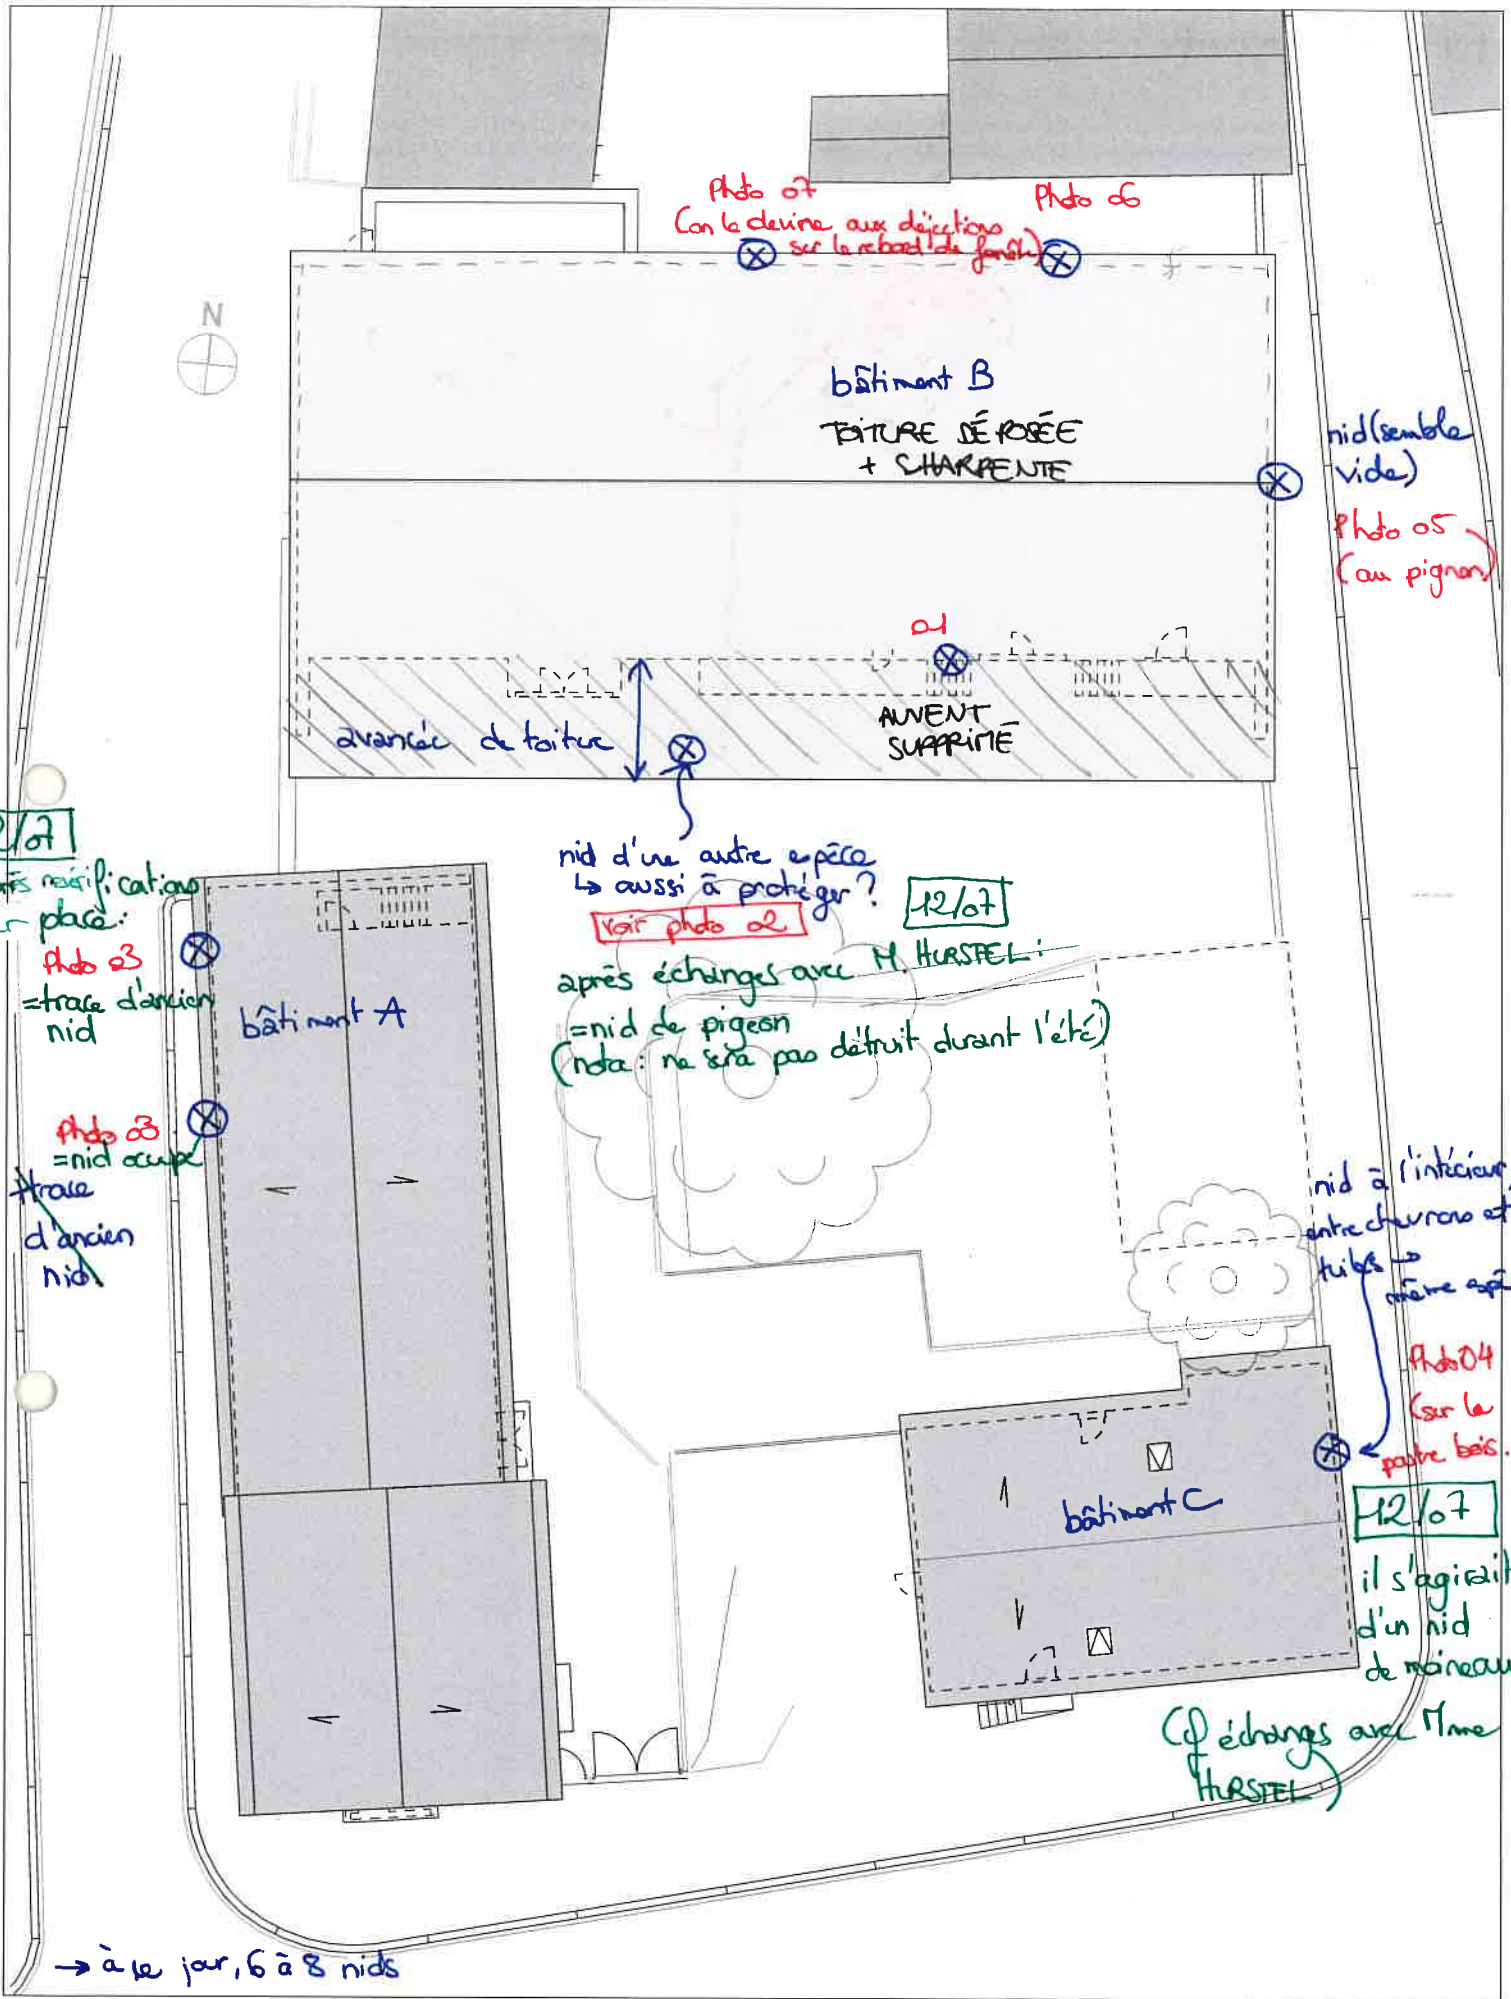 Photo 07
(on le devine aux déjections
sur le rebord de fenêtre)
Photo 06
N
bâtiment B
TOITURE DÉPOSÉE
+ CHARPENTE
nid (semble
vide)
Photo 05
(au pignon)
01
AUVENT
SUPPRIMÉ
avancée de toiture
nid d'une autre espèce
↳ aussi à protéger ?
voir photo 02
12/07
après échanges avec M. HURSTEL :
= nid de pigeon
(nota : ne sera pas détruit durant l'été)
2/07
vérifications
place :
Photo 03
= trace d'ancien
nid
bâtiment A
Photo 03
= nid occupé
trace
d'ancien
nid
nid à l'intérieur,
entre chevrons et
tuiles →
même
Photo 04
(sur la
poutre bois.
bâtiment C
12/07
il s'agirait
d'un nid
de moineau
(cf échanges avec Mme
HURSTEL)
→ à ce jour, 6 à 8 nids